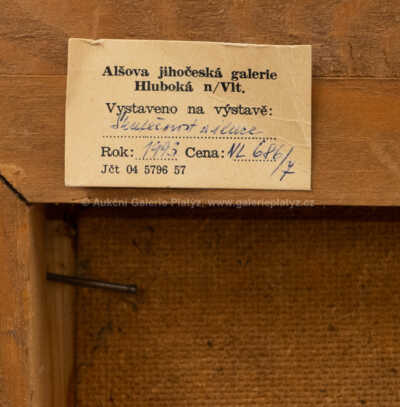 Alšova jihočeská galerie
Hluboká n/Vlt.
Vystaveno na výstavě:
Skutečnost a iluze
Rok: 1993 Cena: VL 686/7
Jčt 04 5796 57
© Aukční Galerie Platýz, www.galerieplatyz.cz